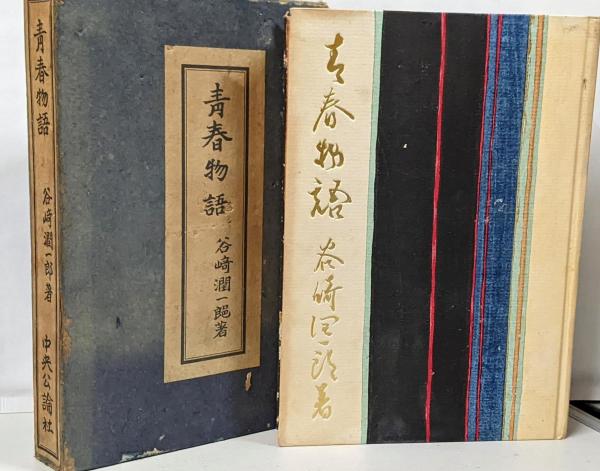 青春物語
谷崎潤一郎著
中央公論社
青春物語
谷崎潤一郎著
青春物語
谷崎潤一郎著